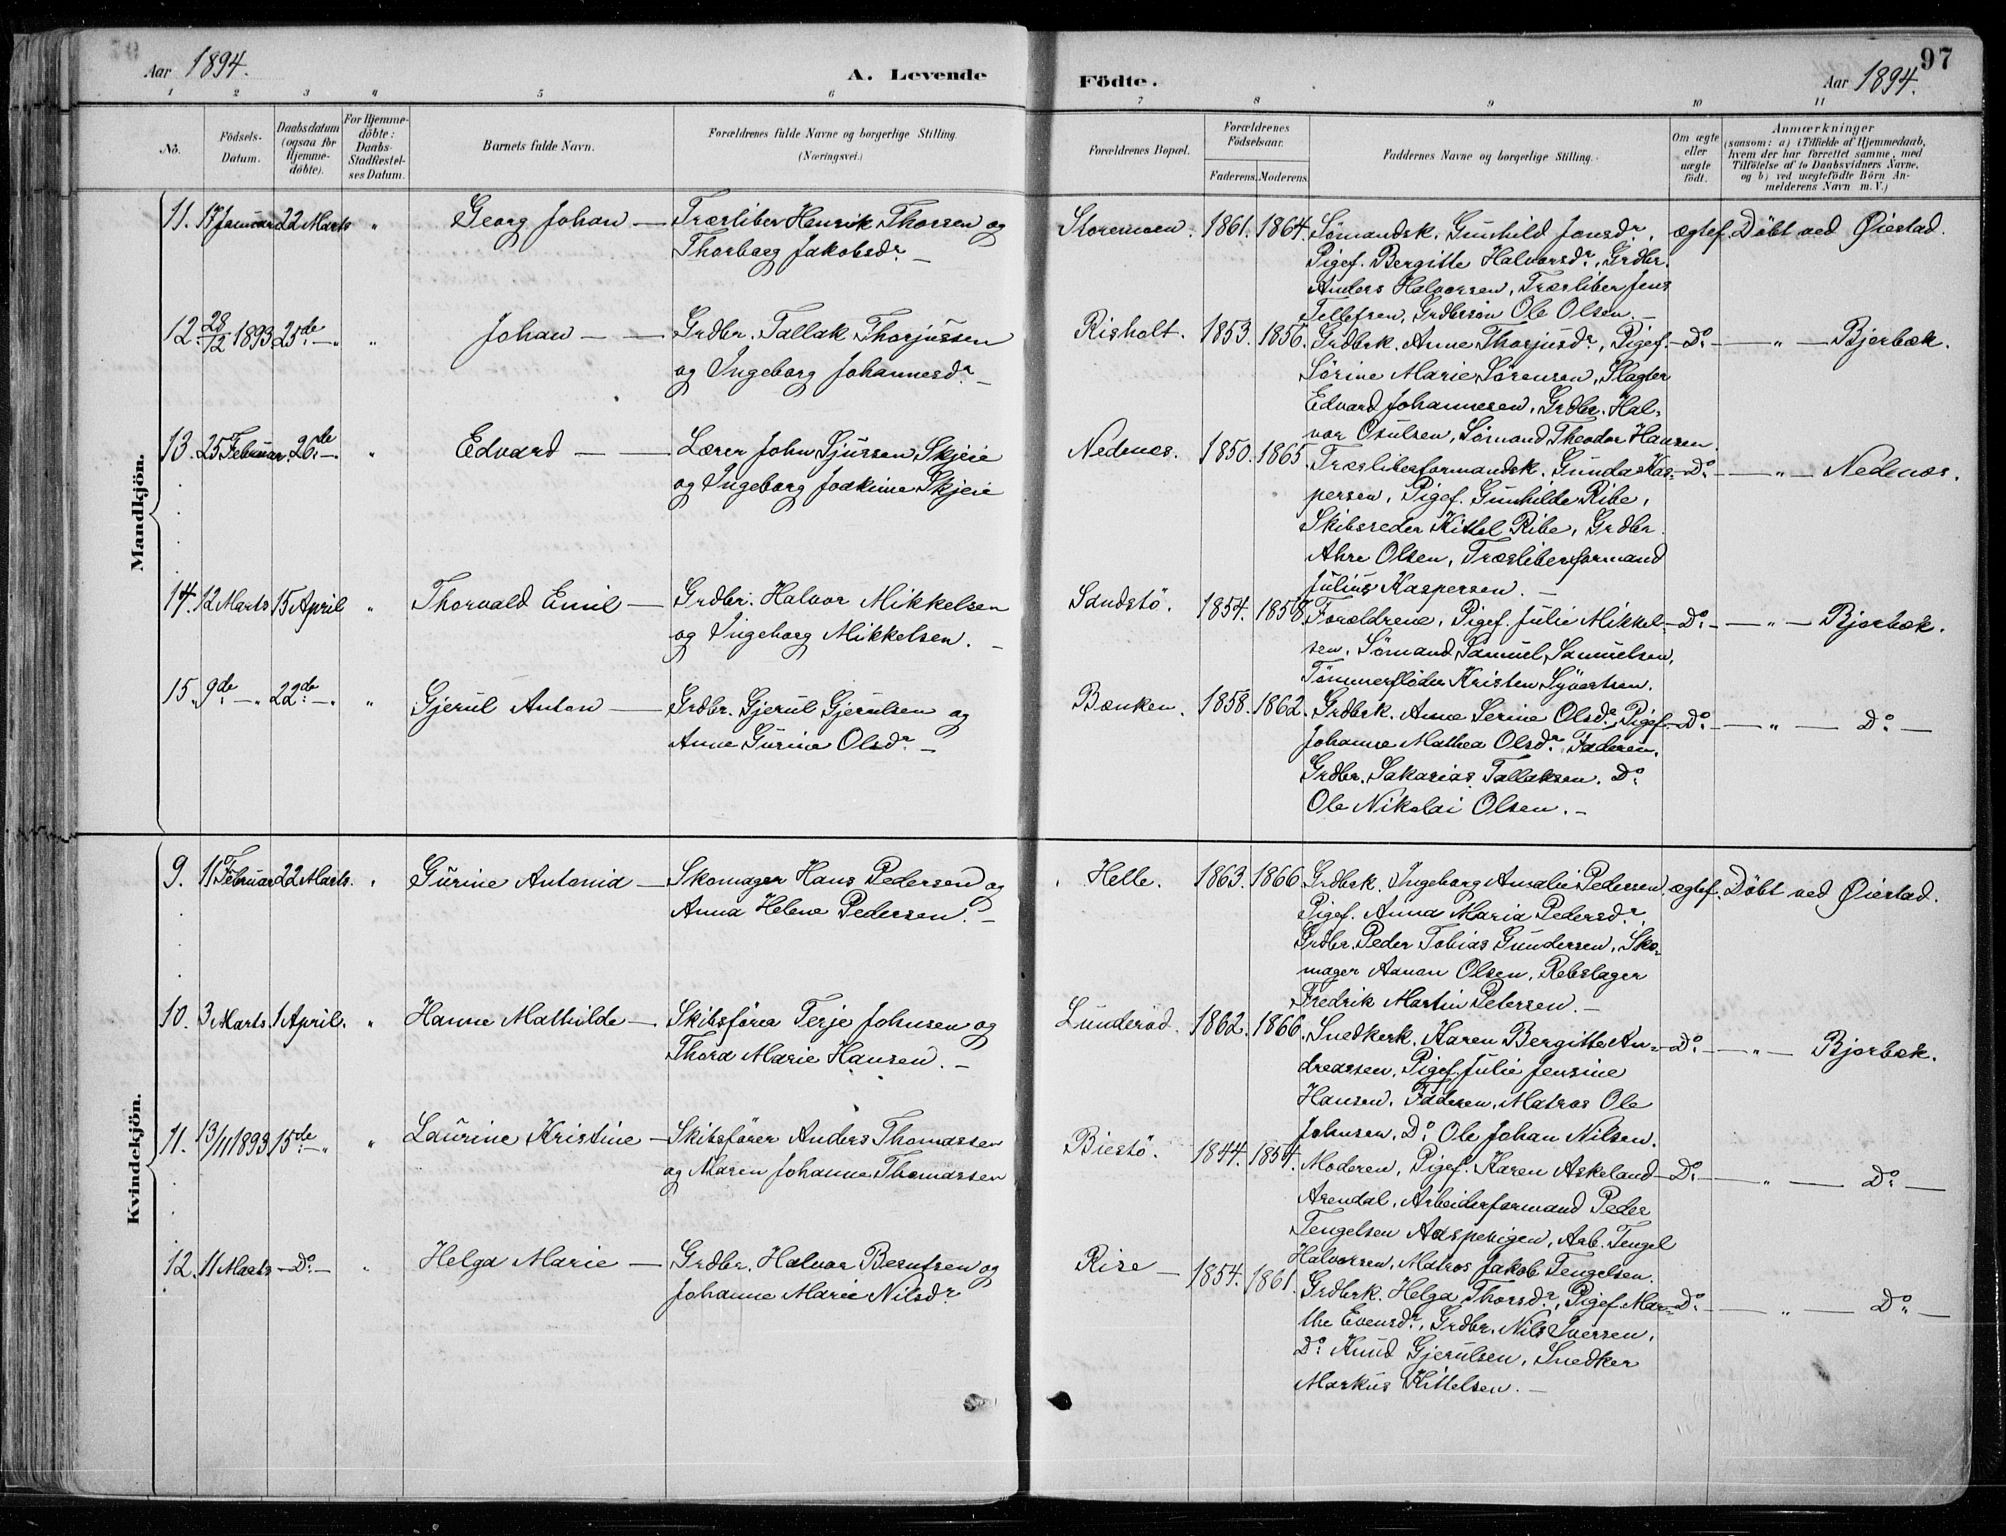 97
Aar 1894.
A. Levende
Födte.
Aar 1894.
1 2 3 4 5 6 7 8 9 10 11
No.
Födsels-Datum.
Daabsdatum (ogsaa for Hjemme-döbte).
For Hjemme-döbte: Daabs-Stadfestel-ses Datum.
Barnets fulde Navn.
Forældrenes fulde Navne og borgerlige Stilling.
(Næringsvei.)
Forældrenes Bopæl.
Forældrenes Födselsaar.
Faderens. Moderens.
Faddernes Navne og borgerlige Stilling.
Om ægte eller uægte födt.
Anmærkninger
(saasom: a) i Tilfælde af Hjemmedaab,
hvem der har forrettet samme, med
Tilföielse af to Daabsvidners Navne,
og b) ved uægtefödte Börn An-
melderens Navn m. V.)
Mandkjön.
11. 17 Januar 22 Marts " Georg Johan — Træsliber Henrik Thorsen og
Thorborg Jakobsdr. —
Storemoen. 1861. 1864. Sømandsk. Gunhild Jonsdr., ægtef. Döbt ved Øiestad.
Pigef. Bergitte Halvorsdr., Grdbr.
Anders Halvorsen, Træsliber Jens
Tellefsen, Grdbrsøn Ole Olsen. —
12. 28/12 1893 25de — " " Johan — — Grdbr. Tallak Thorjussen
og Ingeborg Johannesdr. —
Risholt. 1853. 1856. Grdbrk. Anne Thorjusdr., Pigef. — Do. — " — Bjorbæk.
Sørine Marie Sørensen, Slagter
Edvard Johannesen, Grdbr. Hal-
vor Osulsen, Sømand Theodor Hansen.
13. 25 Februar. 26de —. " Edvard — — Lærer John Sjussen Skjeie
og Ingeborg Joakime Skjeie
Nedenæs. 1850. 1865. Træsliberformandsk. Gunda Kas- — Do. — " — Nedenæs.
persen, Pigef. Gunhilde Ribe,
Skibsreder Kittel Ribe, Grdbr.
Ahre Olsen, Træsliberformand
Julius Kaspersen. —
14. 12 Marts 15 April " Thorvald Emil — Grdbr. Halvor Mikkelsen
og Ingeborg Mikkelsen. —
Sandstø. 1854. 1858. Forældrene, Pigef. Julie Mikkel- — Do. — " — Bjorbæk.
sen, Sømand Samuel Samuelsen,
Tømmerfløder Kristen Syvertsen.
15. 9de — " 22de — " " Gjerul Anton — Grdbr. Gjerul Gjerulsen og
Anne Gurine Olsdr. —
Bænken. 1858. 1862. Grdbrk. Anne Serine Olsdr., Pigef. — Do. — " — Do. —
Johanne Mathea Olsdr. Faderen,
Grdbr. Sakarias Tallaksen, Do.
Ole Nikolai Olsen. —
Kvindekjön.
9. 11 Februar 22 Marts. " Gurine Antonia — Skomager Hans Pedersen og
Anna Helene Pedersen. —
Helle. 1863. 1866. Grdbrk. Ingeborg Amalie Pedersen, ægtef. Döbt ved Øiestad.
Pigef. Anna Maria Pedersdr.,
Grdbr. Peder Tobias Gundersen, Sko-
mager Aanon Olsen, Rebslager
Fredrik Martin Petersen. —
10. 3 Marts. 1 April. " Hanne Mathilde — Skibsfører Terje Johnsen og
Thora Marie Hansen. —
Lunderød. 1862. 1866. Snedkerk. Karen Bergitte An- — Do. — " — Bjorbæk.
dreassen, Pigef. Julie Jensine
Hansen, Faderen, Matros Ole
Johnsen, Do. Ole Johan Nilsen.
11. 13/11 1893 15de — " " Laurine Kristine — Skibsfører Anders Thomassen
og Maren Johanne Thomassen
Biestø. 1844. 1854. Moderen, Pigef. Karen Askeland — Do. — " — Do. —
Arendal, Arbeiderformand Peder
Tengelsen Adspevigen, Arb. Tengel
Halvorsen, Matros Jakob Tengelsen.
12. 11 Marts — Do. — " Helga Marie — Grdbr. Halvor Berntsen og
Johanne Marie Nilsdr.
Rise — 1854. 1861. Grdbrk. Helga Thorsdr., Pigef. Mar- — Do. — " — Do. —
the Evensdr., Grdbr. Nils Iversen,
Do. Knud Gjerulsen, Snedker
Markus Kittelsen. —